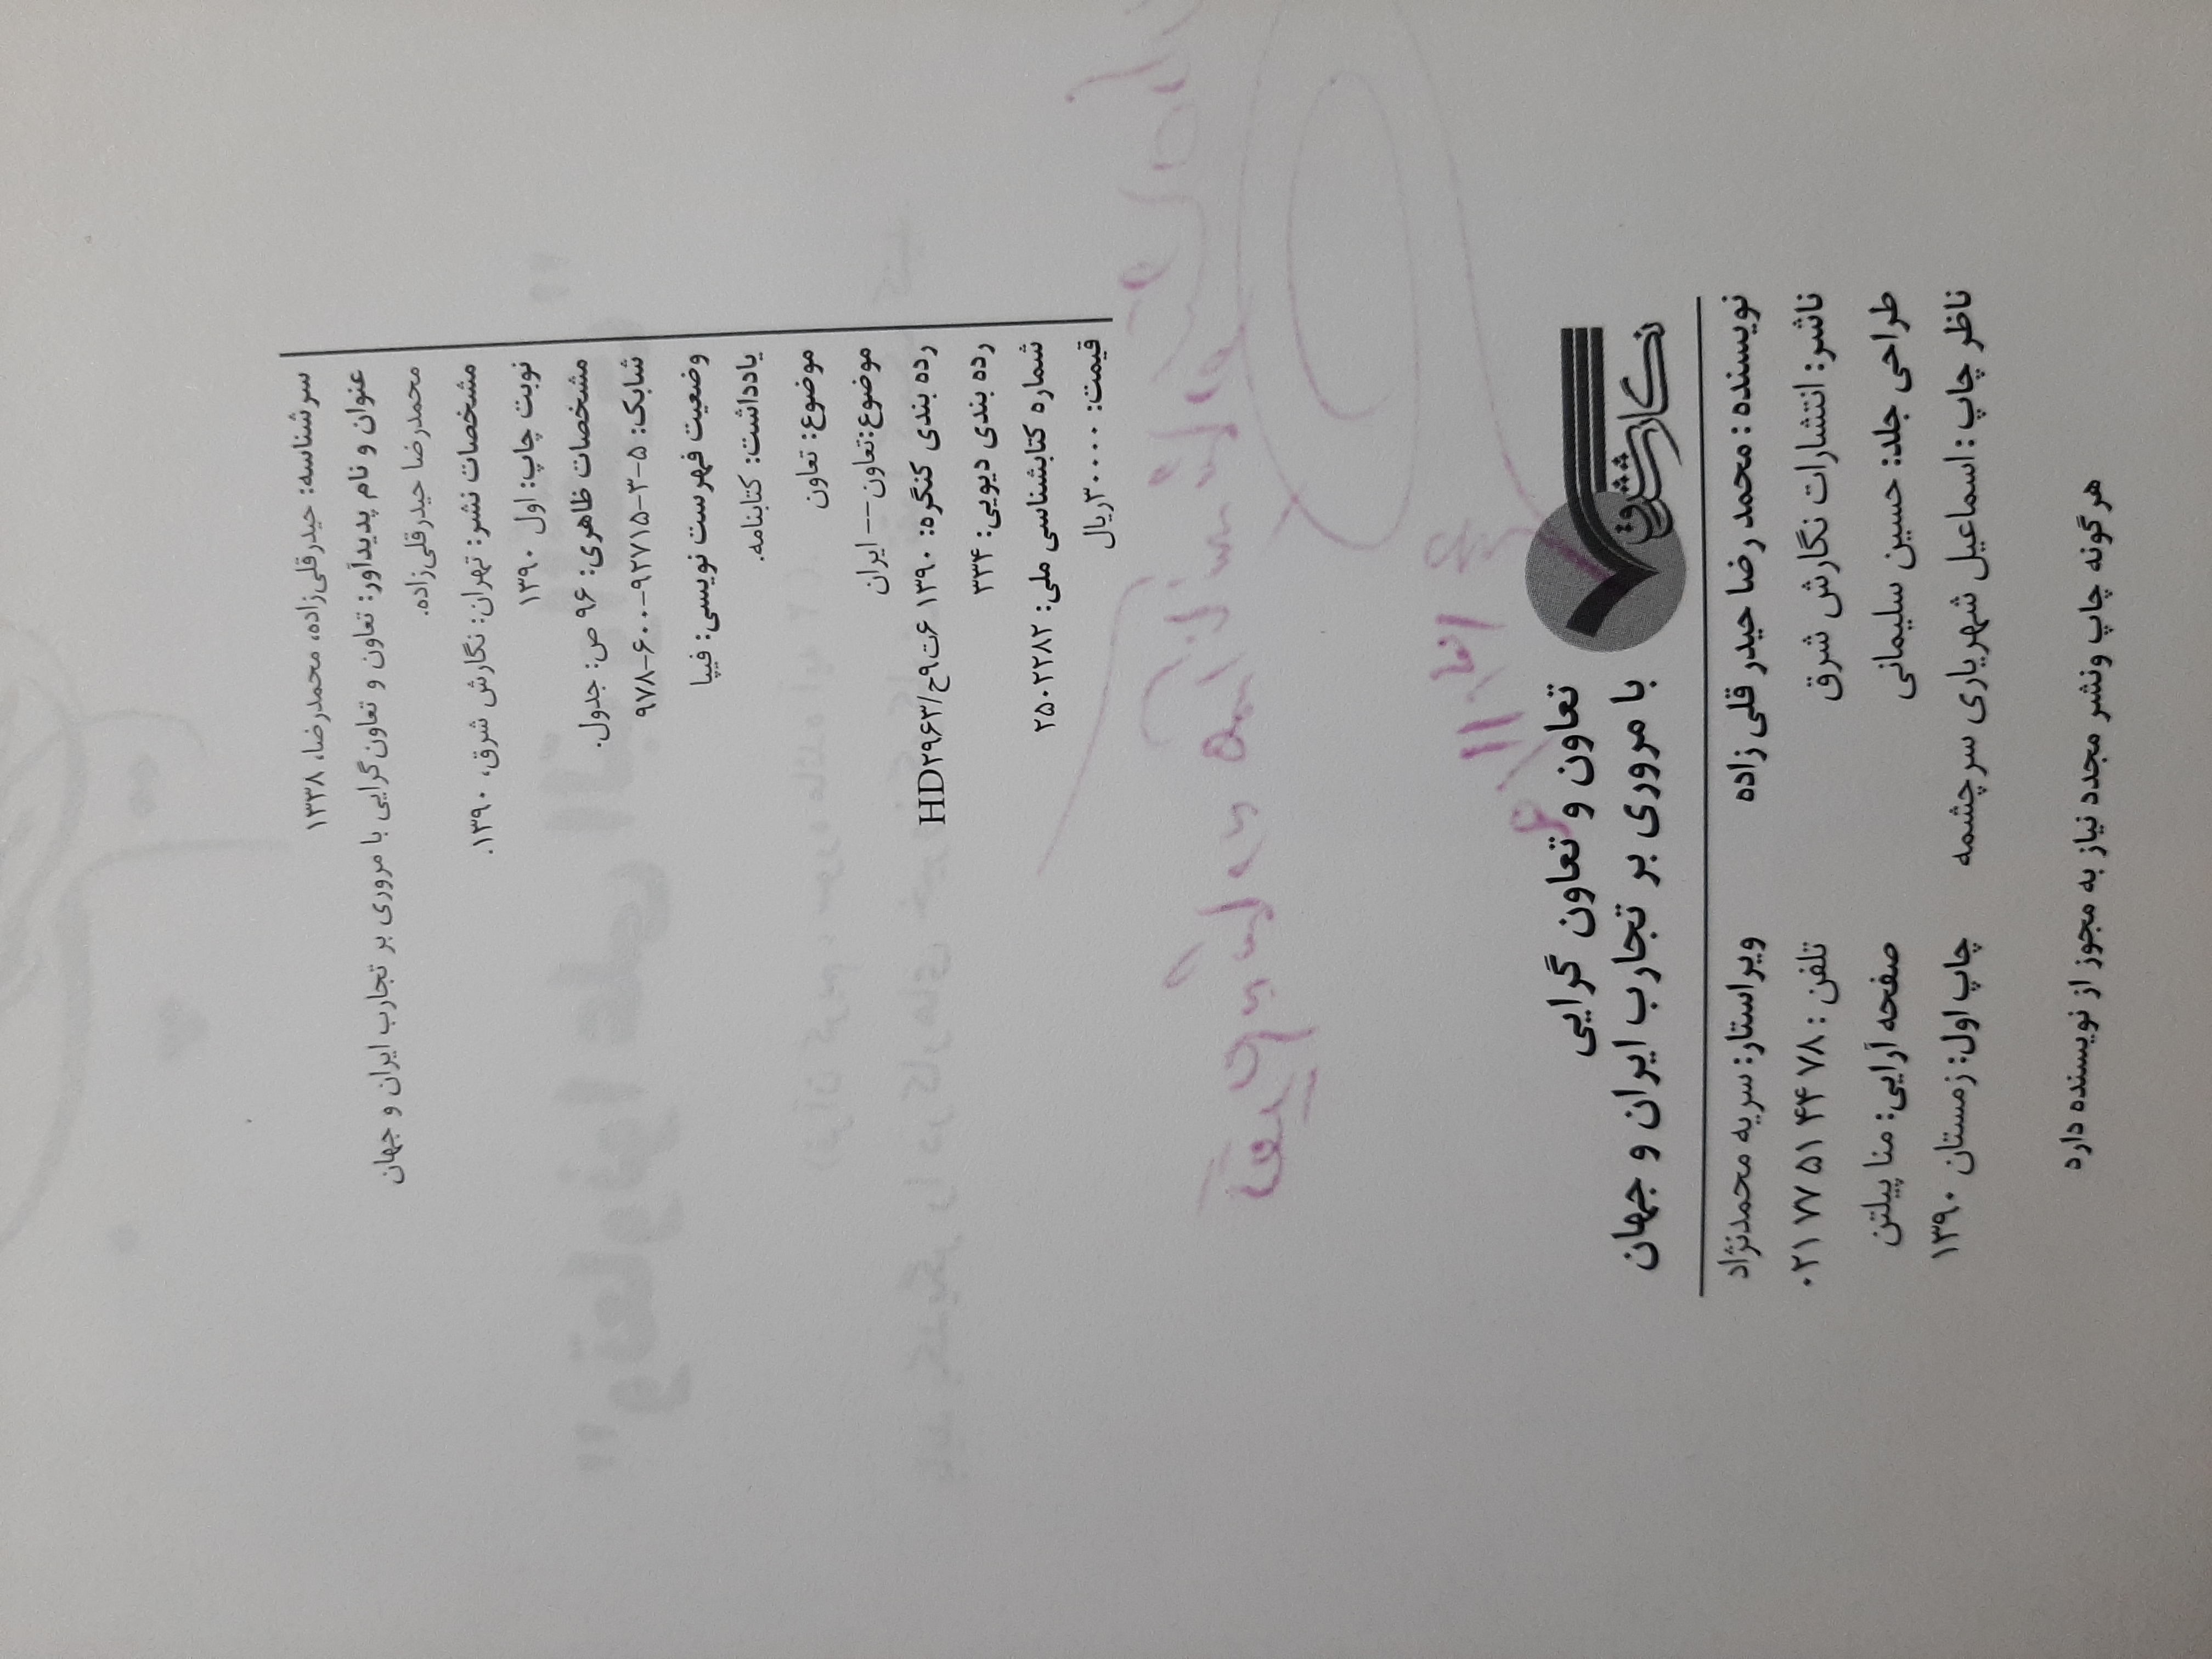 سرشناسه: حیدرقلی‌زاده، محمدرضا، ۱۳۳۸
عنوان و نام پدیدآور: تعاون و تعاون‌گرایی با مروری بر تجارب ایران و جهان
محمدرضا حیدرقلی‌زاده.
مشخصات نشر: تهران: نگارش شرق، ۱۳۹۰.
نوبت چاپ: اول ۱۳۹۰
مشخصات ظاهری: ۹۶ ص: جدول.
شابک: ۵-۳-۹۲۷۱۵-۶۰۰-۹۷۸
وضعیت فهرست نویسی: فیپا
یادداشت: کتابنامه.
موضوع: تعاون
موضوع:تعاون-- ایران
رده بندی کنگره: ۱۳۹۰ ۶ت۹ح/HD۲۹۶۳
رده بندی دیویی: ۳۳۴
شماره کتابشناسی ملی: ۲۵۰۲۲۸۲
قیمت: ۳۰۰۰۰ریال
نگارش شرق
تعاون و تعاون گرایی
با مروری بر تجارب ایران و جهان
نویسنده : محمد رضا حیدر قلی زاده ویراستار: سریه محمدنژاد
ناشر: انتشارات نگارش شرق تلفن : ۷۸ ۴۴ ۷۷۵۱ ۰۲۱
طراحی جلد: حسین سلیمانی صفحه آرایی: منا پیلتن
ناظر چاپ : اسماعیل شهریاری سرچشمه چاپ اول: زمستان ۱۳۹۰
هر گونه چاپ ونشر مجدد نیاز به مجوز از نویسنده دارد